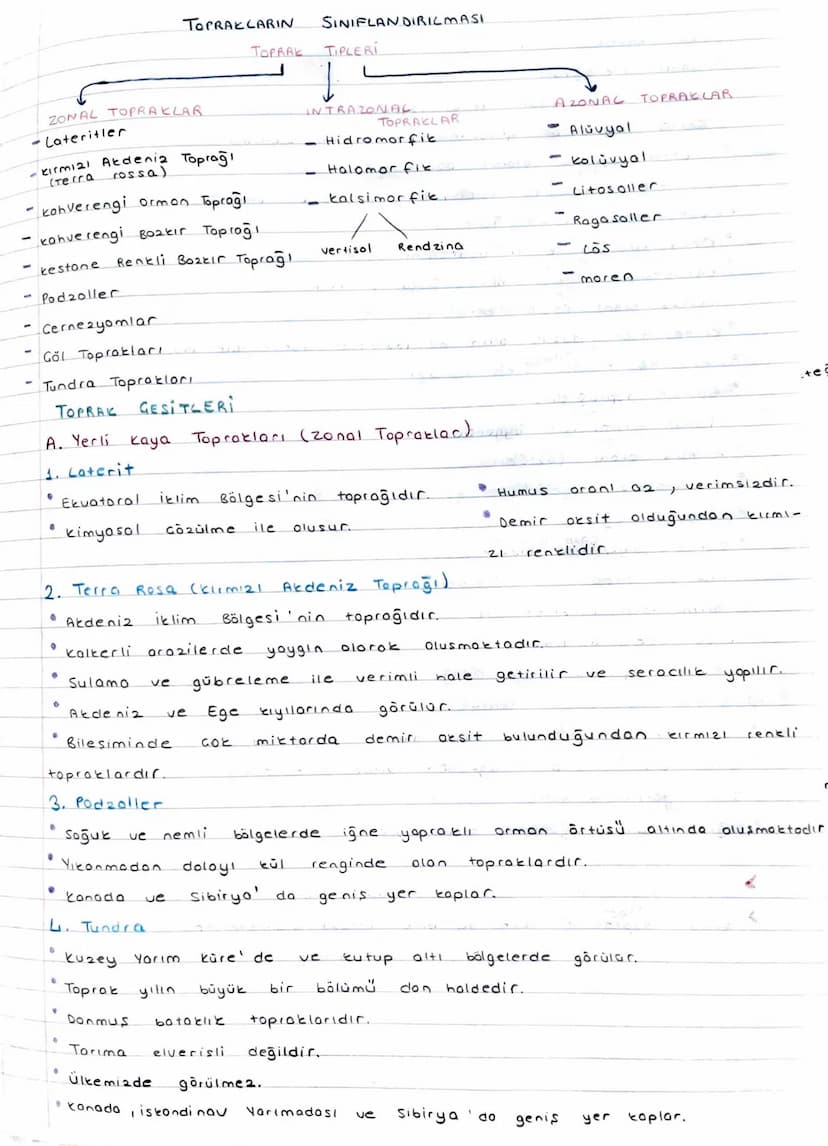 TOPRAKLARIN SINIFLANDIRILMASI
TOPRAK TİPLERİ
ZONAL TOPRAKLAR
- Lateritler
- Kırmızı Akdeniz Toprağı
(Terra rossa)
- Kahverengi Orman Toprağı
- Kahverengi Bozkır Toprağı
- Kestane Renkli Bozkır Toprağı
- Podzoller
- Cernezyomlar
- Göl Toprakları
- Tundra Toprakları
INTRAZONAL
TOPRAKLAR
- Hidromorfik
- Halomorfik
- Kalsimorfik
Vertisol Rendzina
AZONAL TOPRAKLAR
- Alüvyal
- Kolüvyal
- Litosoller
- Ragasoller
- Lös
- moren
TOPRAK ÇEŞİTLERİ
A. Yerli Kaya Toprakları (Zonal Topraklar)
1. Laterit
• Ekvatoral İklim Bölgesi'nin toprağıdır.
• Kimyasal Çözülme ile oluşur.
• Humus oranı az, verimsizdir.
• Demir oksit olduğundan kırmı-
zı renklidir.
2. Terra Rosa (Kırmızı Akdeniz Toprağı)
• Akdeniz İklim Bölgesi'nin toprağıdır.
• Kalkerli arazilerde yaygın olarak oluşmaktadır.
• Sulama ve gübreleme ile verimli hale getirilir ve seracılık yapılır.
• Akdeniz ve Ege kıyılarında görülür.
• Bileşiminde çok miktarda demir oksit bulunduğundan kırmızı renkli
topraklardır.
3. Podzoller
• Soğuk ve nemli bölgelerde iğne yapraklı orman örtüsü altında oluşmaktadır
• Yıkanmadan dolayı kül renginde olan topraklardır.
• Kanada ve Sibirya'da geniş yer kaplar.
4. Tundra
• Kuzey Yarım Küre'de ve kutup altı bölgelerde görülür.
• Toprak yılın büyük bir bölümü don haldedir.
• Donmuş bataklık topraklarıdır.
• Tarıma elverişli değildir.
• Ülkemizde görülmez.
• Kanada, İskandinav Yarımadası ve Sibirya'da geniş yer kaplar.